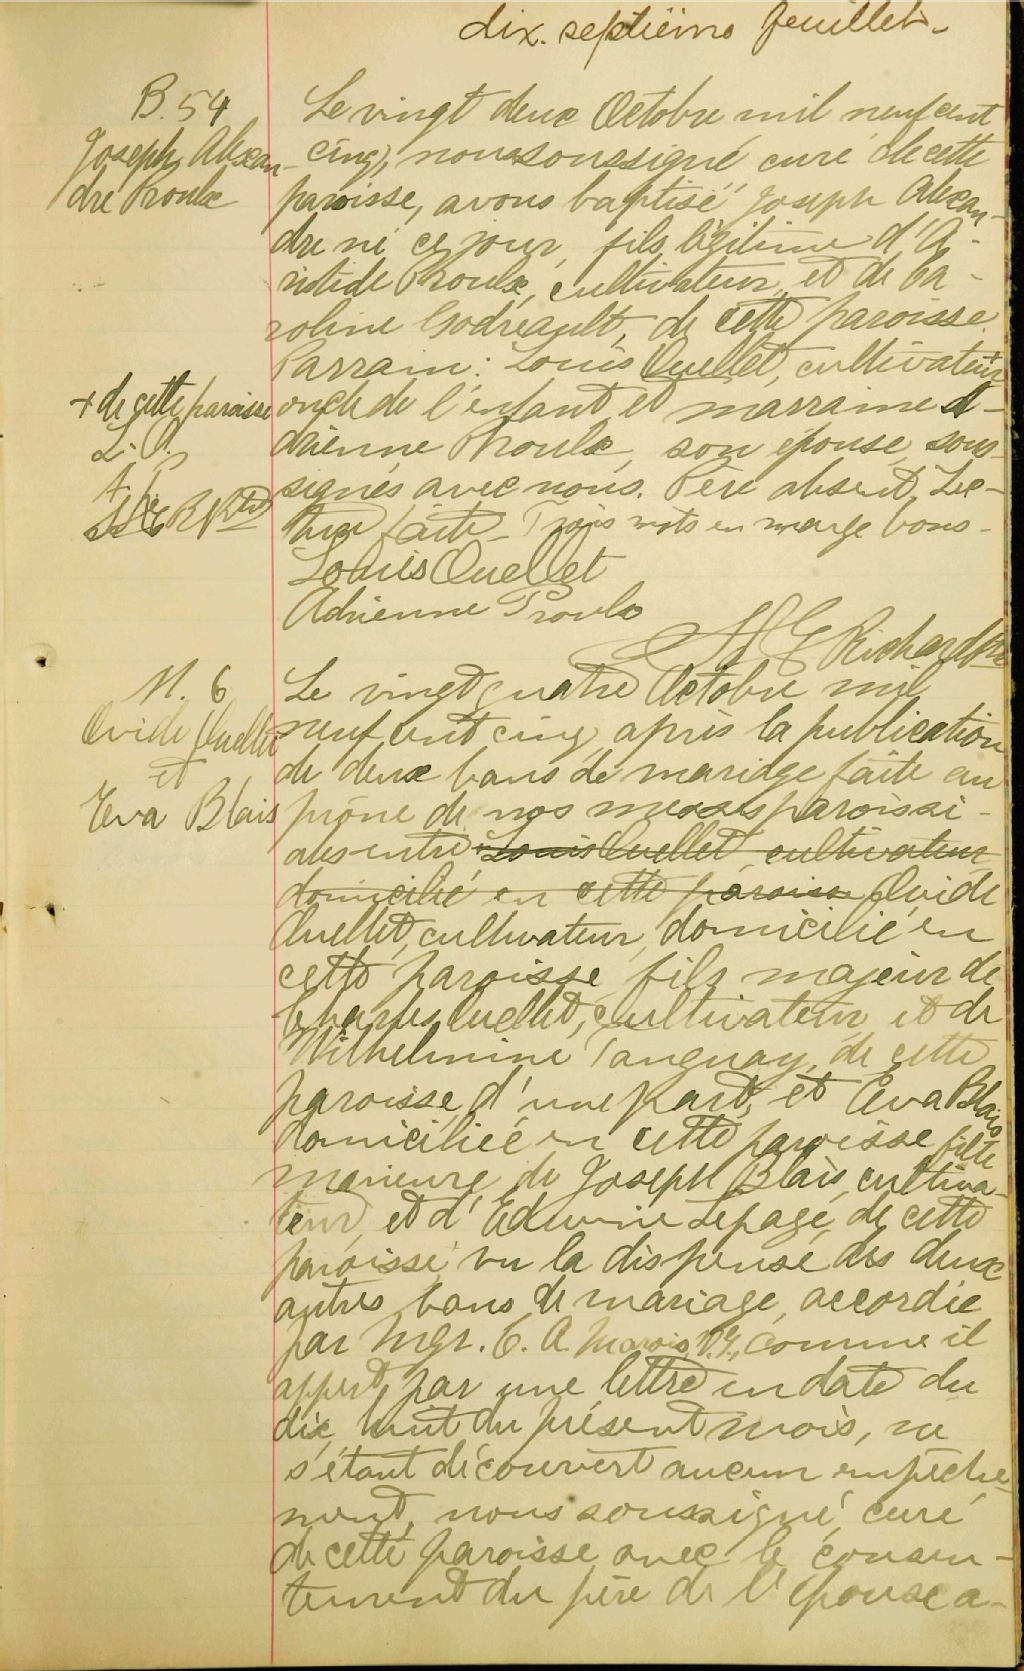 dix-septième feuillet-
B. 54
Joseph Alexan-
dre Proulx
Le vingt deux Octobre mil neuf cent
cinq, nous soussigné curé de cette
paroisse, avons baptisé Joseph Alexan-
dre né ce jour, fils légitime d'A-
ristide Proulx, cultivateur, et de Ca-
roline Godreault, de cette paroisse.
Parrain: Louis Ouellet, cultivateur +
+ de cette paroisse
L. O.
A. P.
oncle de l'enfant et marraine A-
drienne Proulx, son épouse, sous-
signés avec nous. Père absent, Lec-
ture faite. Trois mots en marge bons-
Louis Ouellet
Adrienne Proulx
Richard Ptre
M. 6
Ovide Ouellet
et
Eva Blais
Le vingt quatre Octobre mil
neuf cent cinq, après la publication
de deux bans de mariage faite au
prône de nos messes paroissi-
ales entre Louis Ouellet, cultivateur
domicilié en cette paroisse Ovide
Ouellet, cultivateur, domicilié en
cette paroisse, fils majeur de
Charles Ouellet, cultivateur, et de
Wilhelmine Tanguay, de cette
paroisse d'une part, et Eva Blais
domiciliée en cette paroisse fille
mineure de Joseph Blais, cultiva-
teur, et d' Lepage, de cette
paroisse, vu la dispense des deux
autres bans de mariage, accordée
par Mgr. C. A. Marois, V.G., comme il
appert par une lettre en date du
dix huit du présent mois, ne
s'étant découvert aucun empêche-
ment, nous soussigné, curé
de cette paroisse avec le consen-
tement du père de l'épouse a-